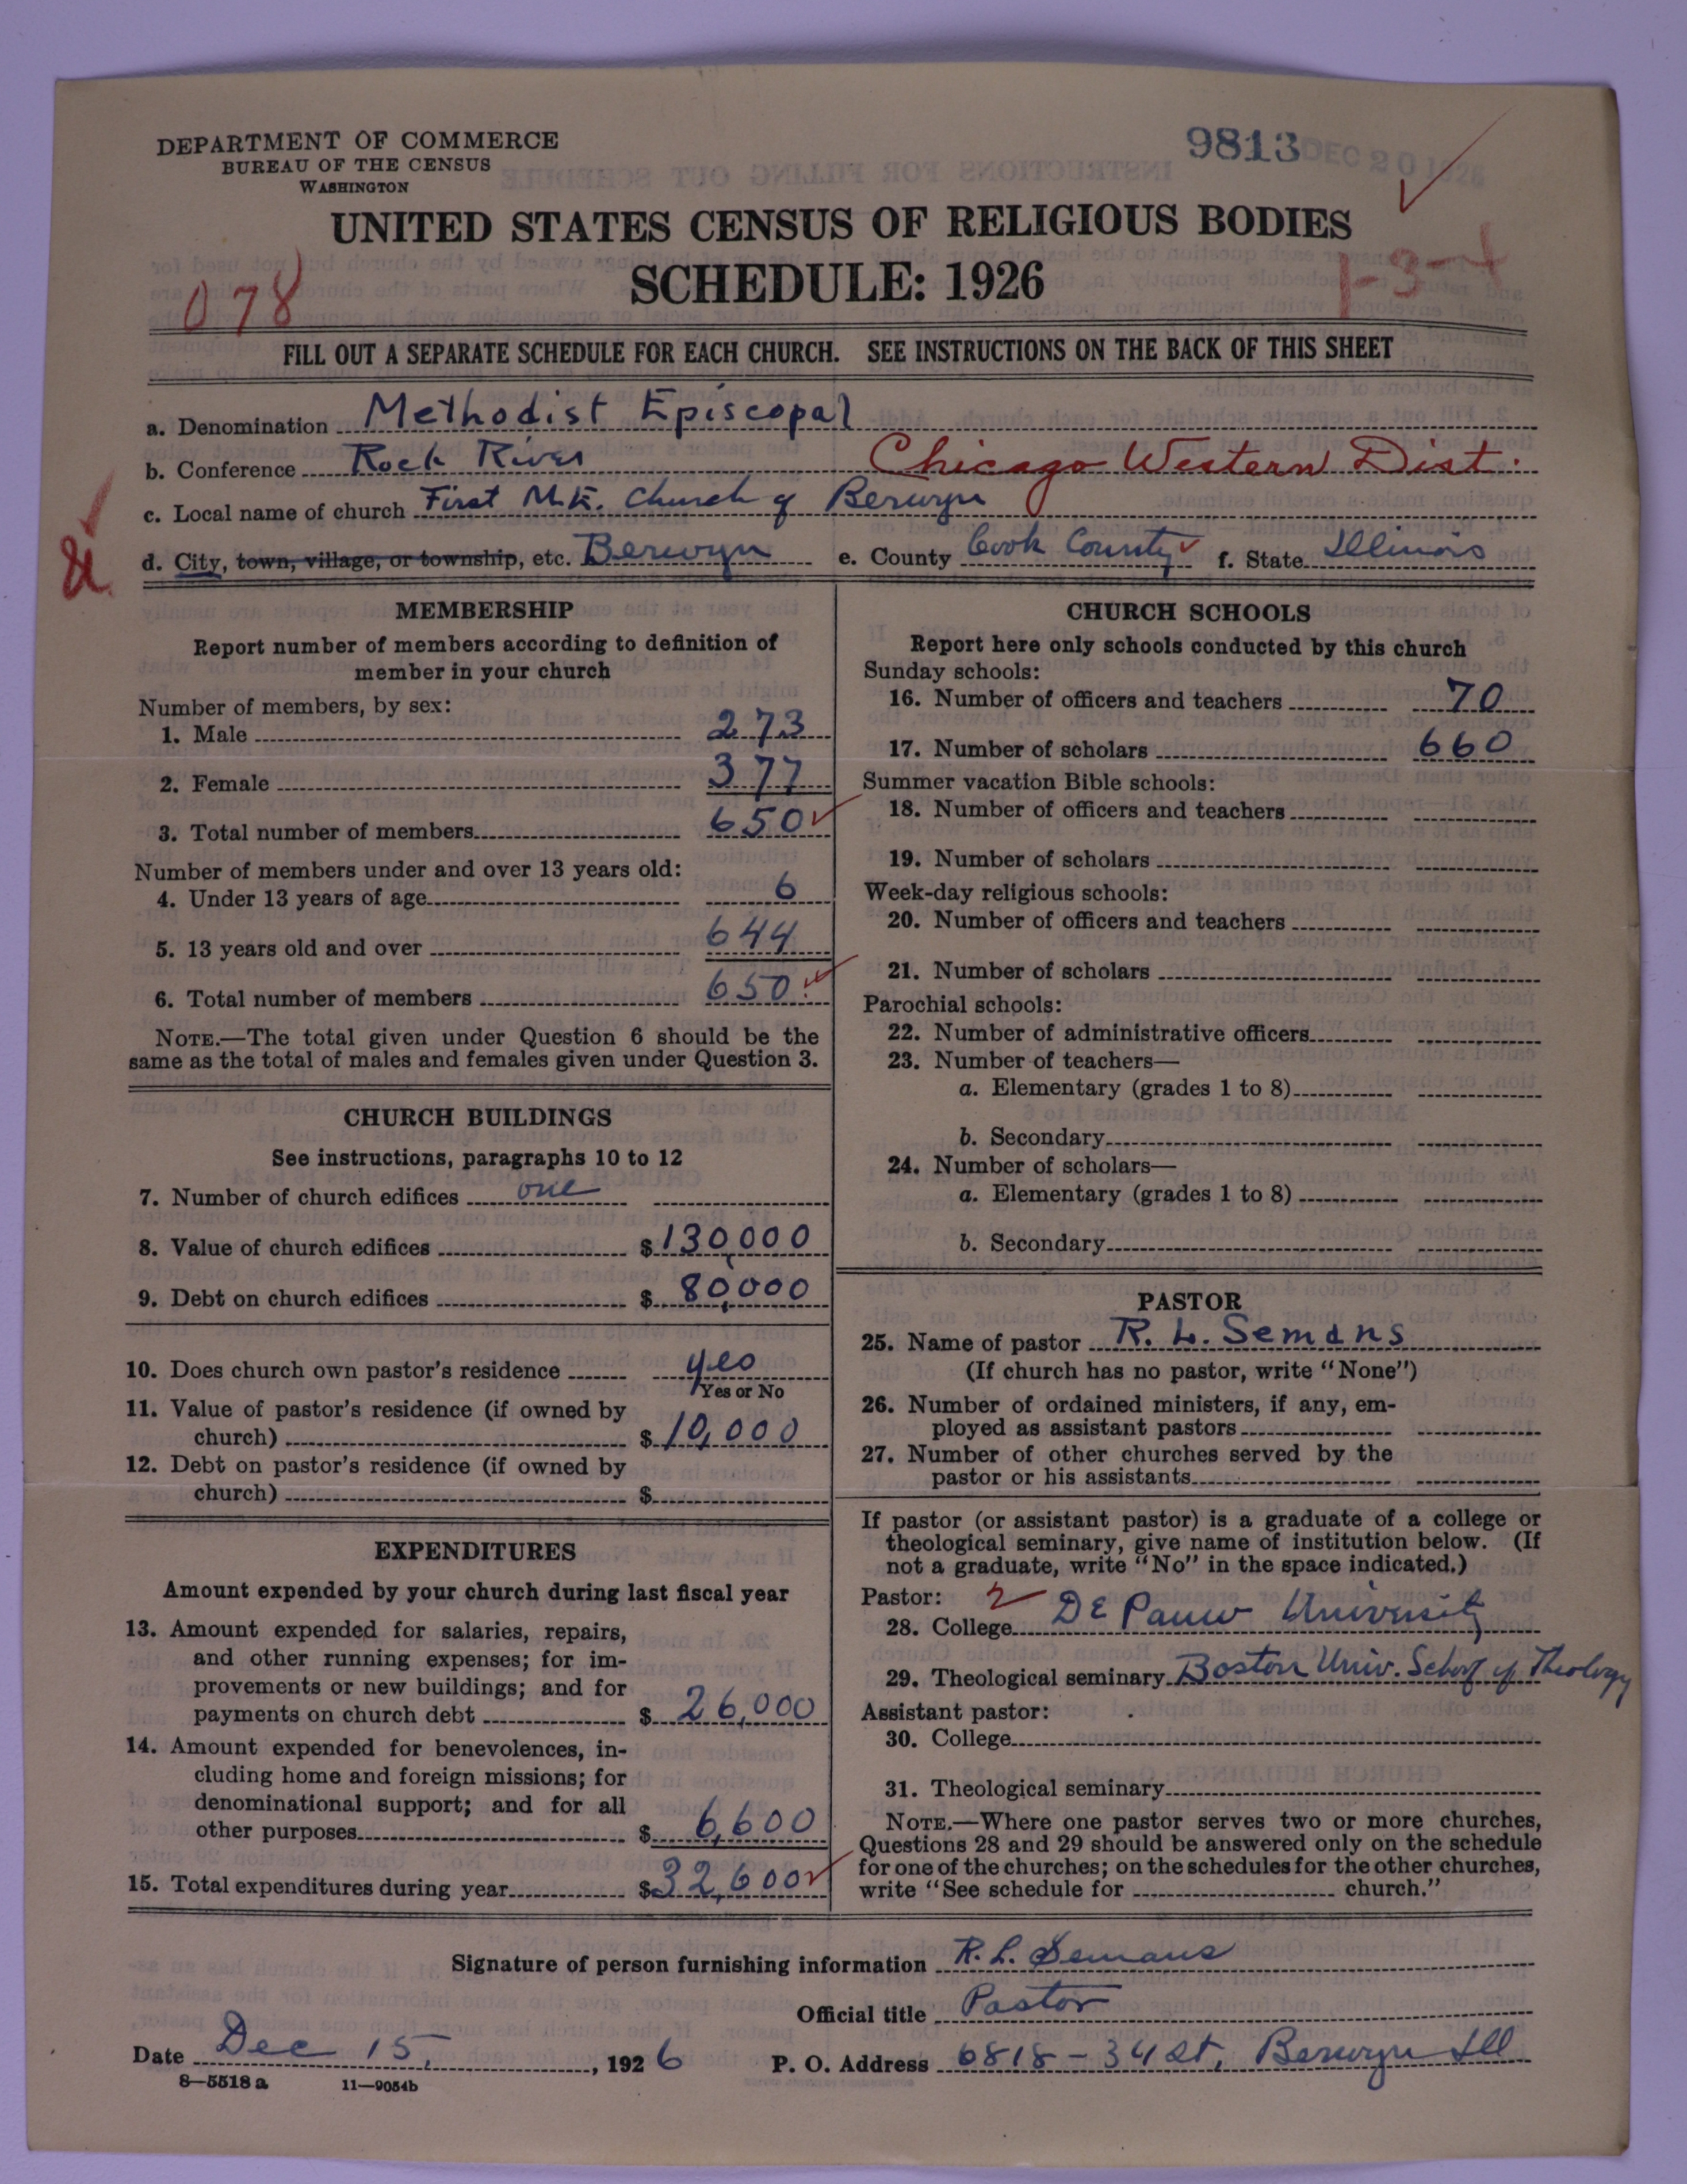 DEPARTMENT OF COMMERCE
BUREAU OF THE CENSUS
WASHINGTON
9813 DEC 20 1926
UNITED STATES CENSUS OF RELIGIOUS BODIES
SCHEDULE: 1926
078
1-3-4
FILL OUT A SEPARATE SCHEDULE FOR EACH CHURCH. SEE INSTRUCTIONS ON THE BACK OF THIS SHEET
a. Denomination Methodist Episcopal
b. Conference Rock River Chicago Western Dist.
c. Local name of church First M.E. Church of Berwyn
d. City, town, village, or township, etc. Berwyn e. County Cook County f. State Illinois
MEMBERSHIP
Report number of members according to definition of
member in your church
Number of members, by sex:
1. Male 273
2. Female 377
3. Total number of members 650
Number of members under and over 13 years old:
4. Under 13 years of age 6
5. 13 years old and over 644
6. Total number of members 650
NOTE.—The total given under Question 6 should be the
same as the total of males and females given under Question 3.
CHURCH BUILDINGS
See instructions, paragraphs 10 to 12
7. Number of church edifices one
8. Value of church edifices $130,000
9. Debt on church edifices $80,000
10. Does church own pastor's residence yes
Yes or No
11. Value of pastor's residence (if owned by
church) $10,000
12. Debt on pastor's residence (if owned by
church) $
EXPENDITURES
Amount expended by your church during last fiscal year
13. Amount expended for salaries, repairs,
and other running expenses; for im-
provements or new buildings; and for
payments on church debt $26,000
14. Amount expended for benevolences, in-
cluding home and foreign missions; for
denominational support; and for all
other purposes $6,600
15. Total expenditures during year $32,600
CHURCH SCHOOLS
Report here only schools conducted by this church
Sunday schools:
16. Number of officers and teachers 70
17. Number of scholars 660
Summer vacation Bible schools:
18. Number of officers and teachers
19. Number of scholars
Week-day religious schools:
20. Number of officers and teachers
21. Number of scholars
Parochial schools:
22. Number of administrative officers
23. Number of teachers—
a. Elementary (grades 1 to 8)
b. Secondary
24. Number of scholars—
a. Elementary (grades 1 to 8)
b. Secondary
PASTOR
25. Name of pastor R. L. Semans
(If church has no pastor, write "None")
26. Number of ordained ministers, if any, em-
ployed as assistant pastors
27. Number of other churches served by the
pastor or his assistants
If pastor (or assistant pastor) is a graduate of a college or
theological seminary, give name of institution below. (If
not a graduate, write "No" in the space indicated.)
Pastor: 2
28. College DE Pauw University
29. Theological seminary Boston Univ. School of Theology
Assistant pastor:
30. College
31. Theological seminary
NOTE.—Where one pastor serves two or more churches,
Questions 28 and 29 should be answered only on the schedule
for one of the churches; on the schedules for the other churches,
write "See schedule for church."
Signature of person furnishing information R. L. Semans
Official title Pastor
Date Dec 15, 1926 P. O. Address 6818 - 34 St, Berwyn Ill
8—5518 a 11—9054b